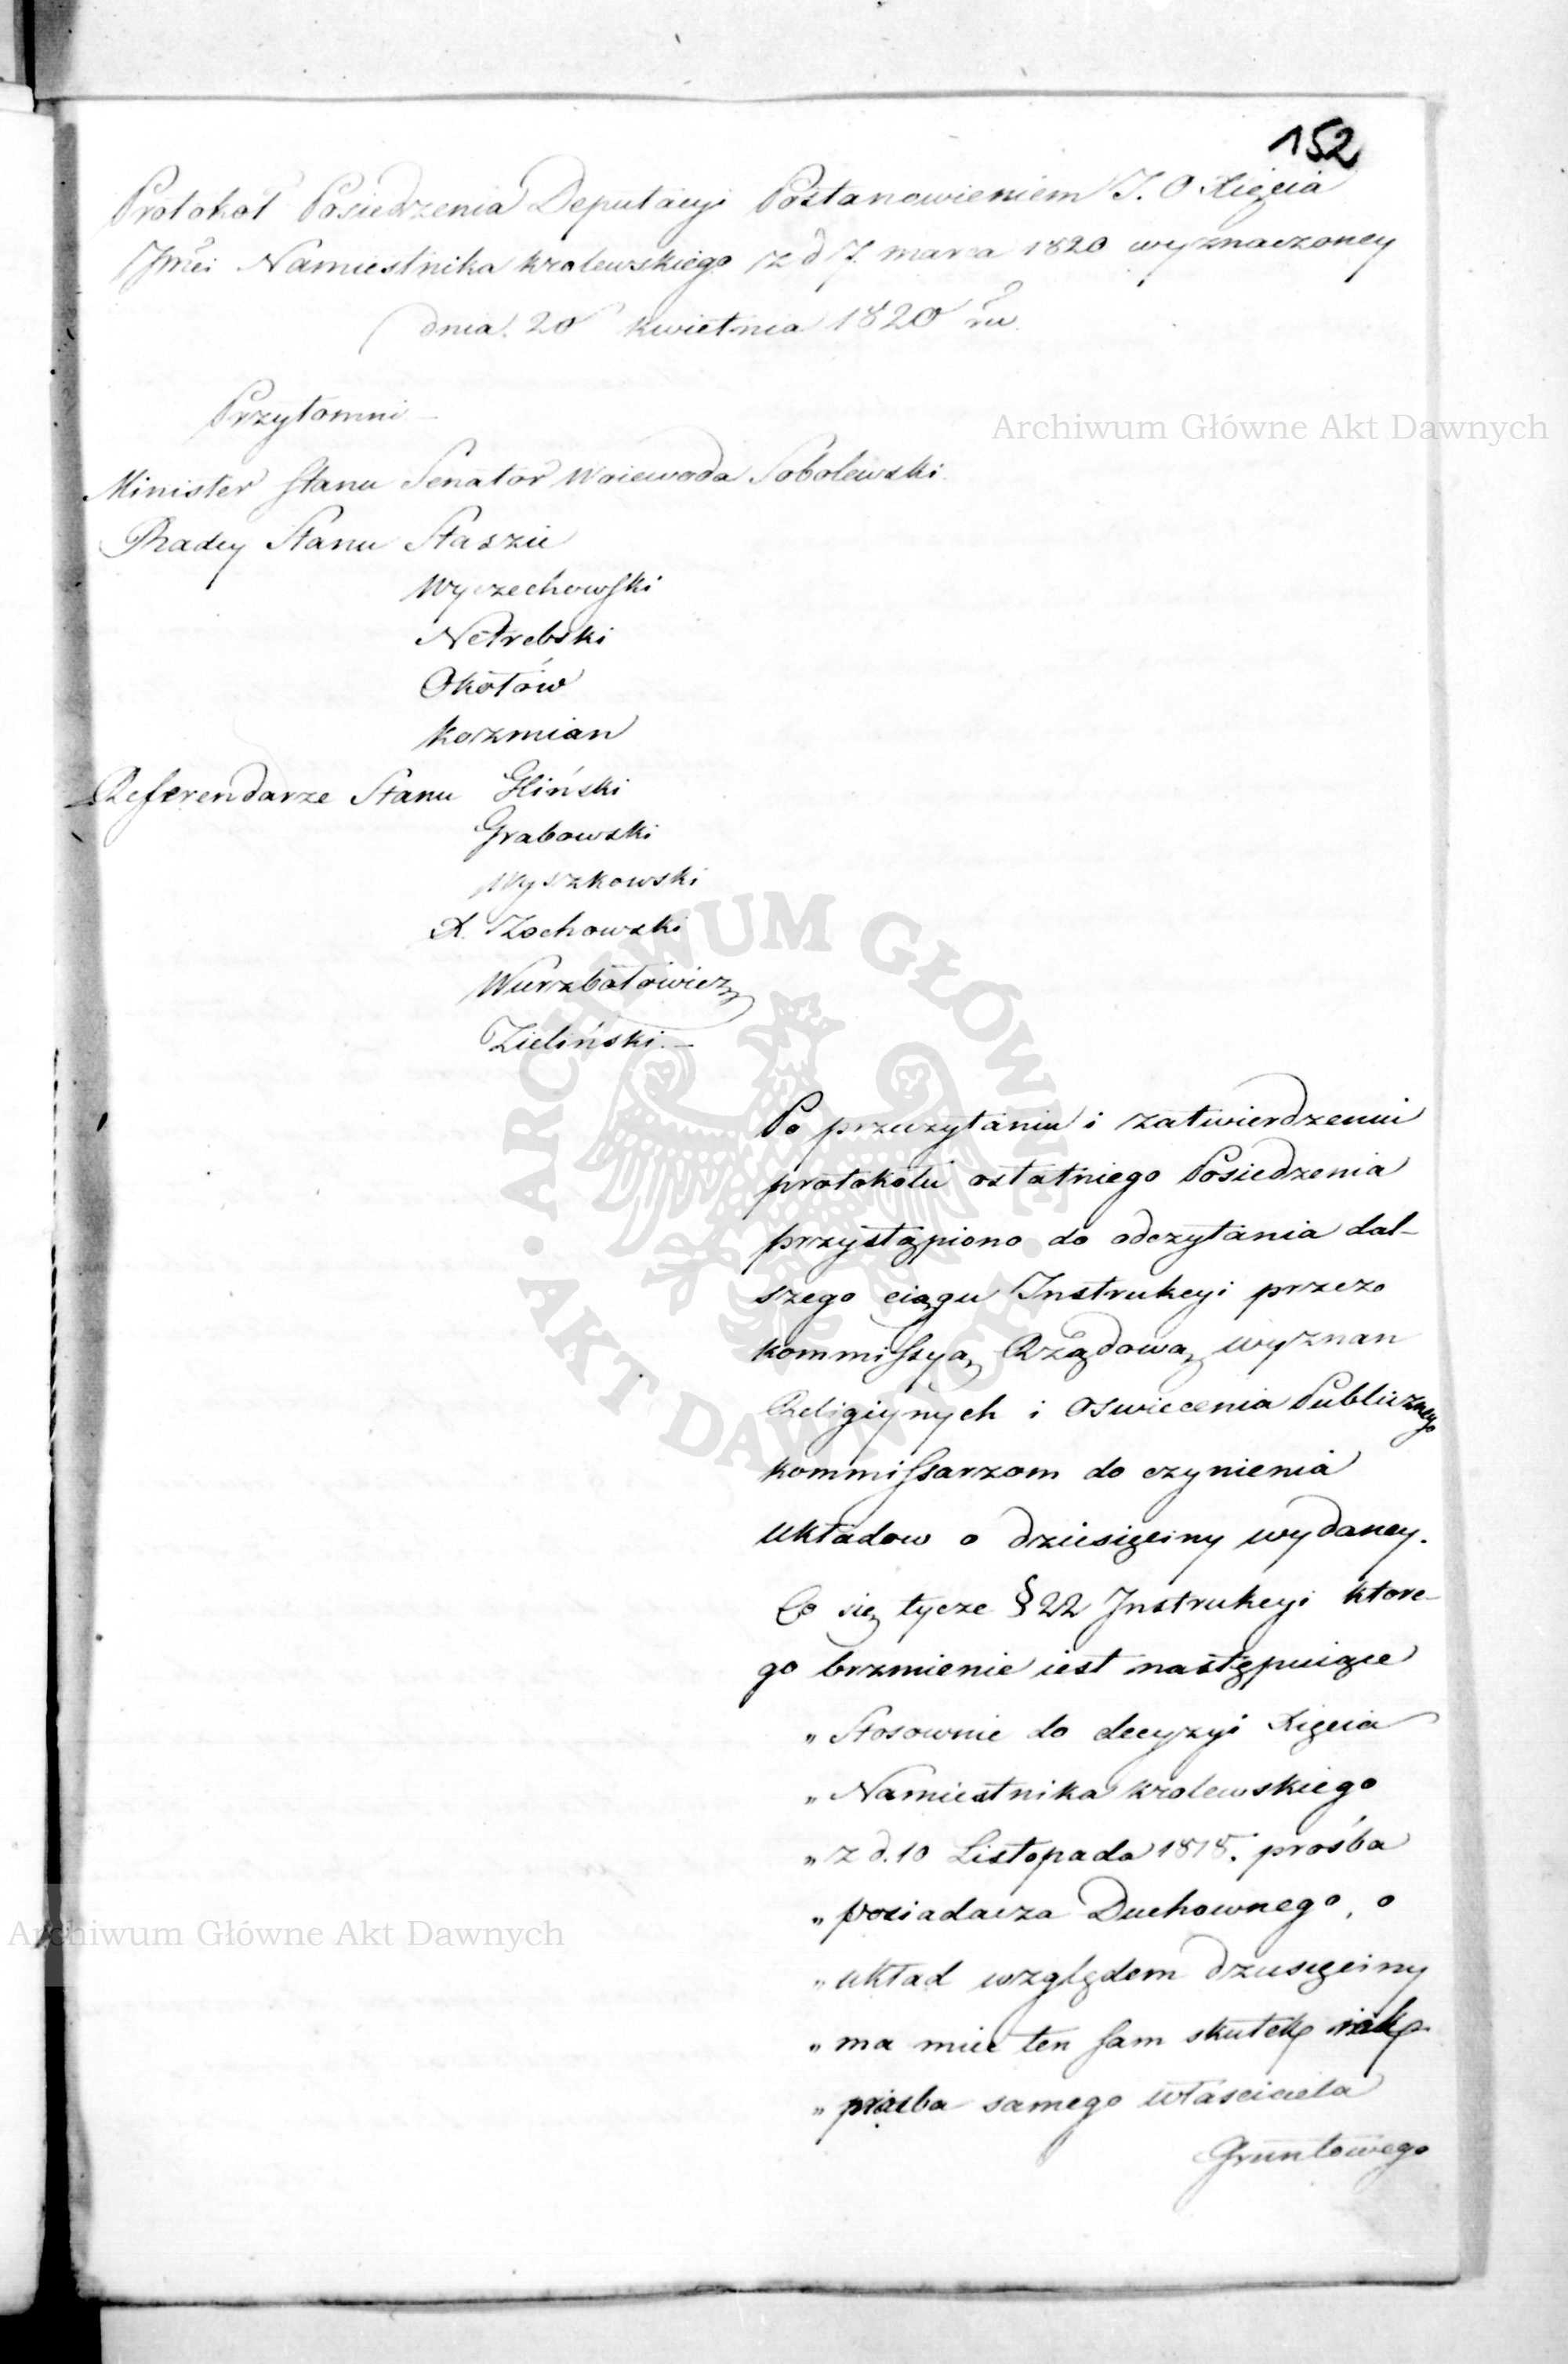 152
Protokół Posiedzenia Deputacyi Postanowieniem J. O Xięcia
Jmci Namiestnika Krolewskiego z d 7. marca 1820 wyznaczoney
dnia 20 kwietnia 1820 ru
Przytomni
Archiwum Główne Akt Dawnych
Minister Stanu Senator Woiewoda Sobolewski.
Radcy Stanu Staszic
Wyczechowski
Netrebski
Okołów
Kozmian
Referendarze Stanu Gliński
Grabowski
Wyszkowski
X. Zochowski
Wurzbałowicz
Zieliński.
ARCHIWUM GŁÓWNE AKT DAWNYCH
Po przeczytaniu i zatwierdzeniu
protokołu ostatniego Posiedzenia
przystąpiono do odczytania dal-
szego ciągu Instrukcyi przez
kommissyą Rządową wyznan
Religiynych i Oswiecenia Publicznego
kommissarzom do czynienia
układow o dziesięciny wydaney.
Co się tycze § 22 Instrukcyi ktore-
go brzmienie iest następuiące
„ Stosownie do decyzyi Xięcia
„ Namiestnika Krolewskiego
„ z d. 10 Listopada 1818. prośba
„ posiadacza Duchownego, o
Archiwum Główne Akt Dawnych
„ układ względem dziesięciny
„ ma mieć ten sam skutek iak
„ prośba samego własciciela
Gruntowego